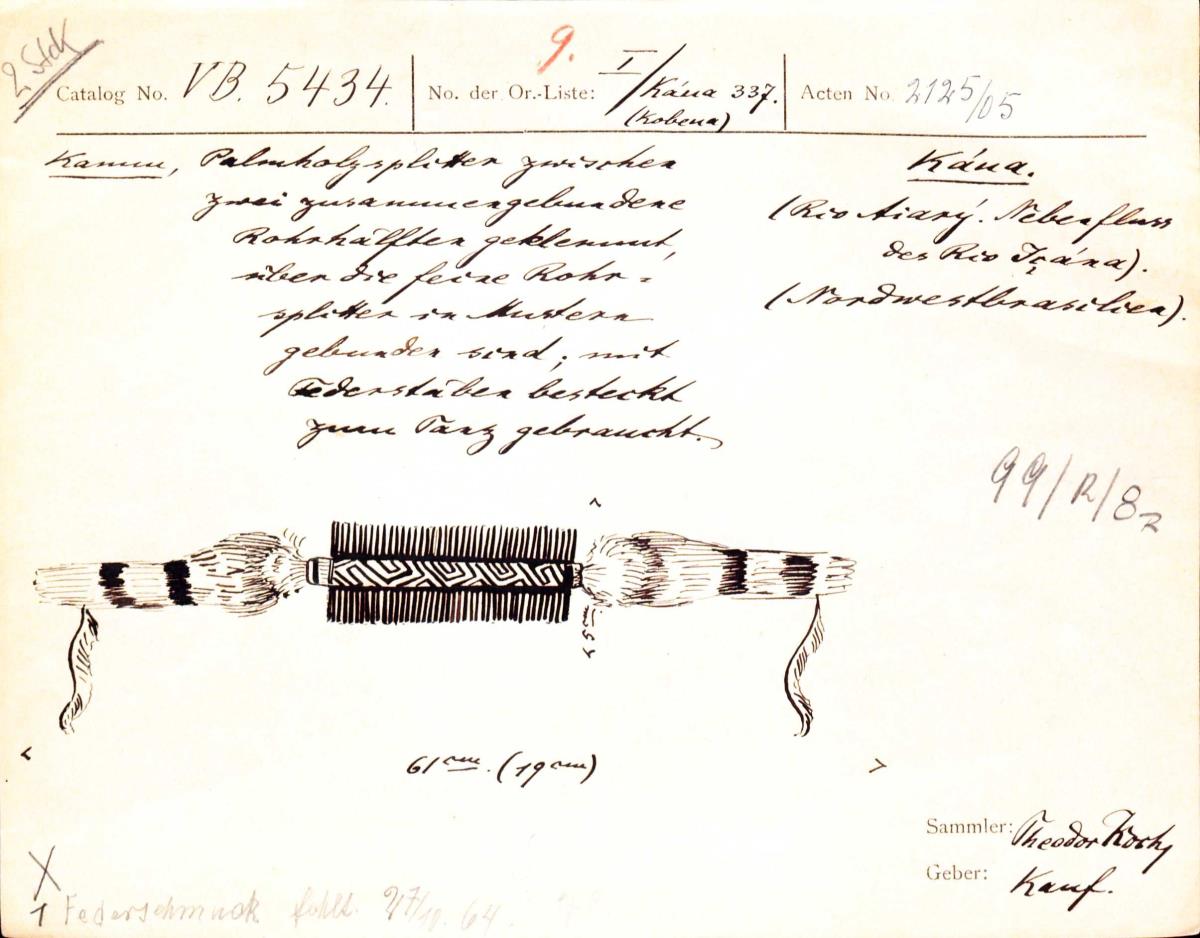 2 Stck
9.
Catalog No. VB. 5434.
No. der Or.-Liste: I/Káua 337.
(Kobeua)
Acten No. 2125/05
Kamm, Palmholzsplitter zwischen
zwei zusammengebundene
Rohrhälften geklemmt,
über die feine Rohr=
splitter in Mustern
gebunden sind; mit
Federstäben besteckt
zum Tanz gebraucht.
Káua.
(Rio Aiarý. Nebenfluss
des Rio Içána).
(Nordwestbrasilien).
99/R/82
61 cm. (19 cm)
Sammler: Theodor Koch,
Geber: Kauf.
X
1 Federschmuck fehlt. 27/10. 64